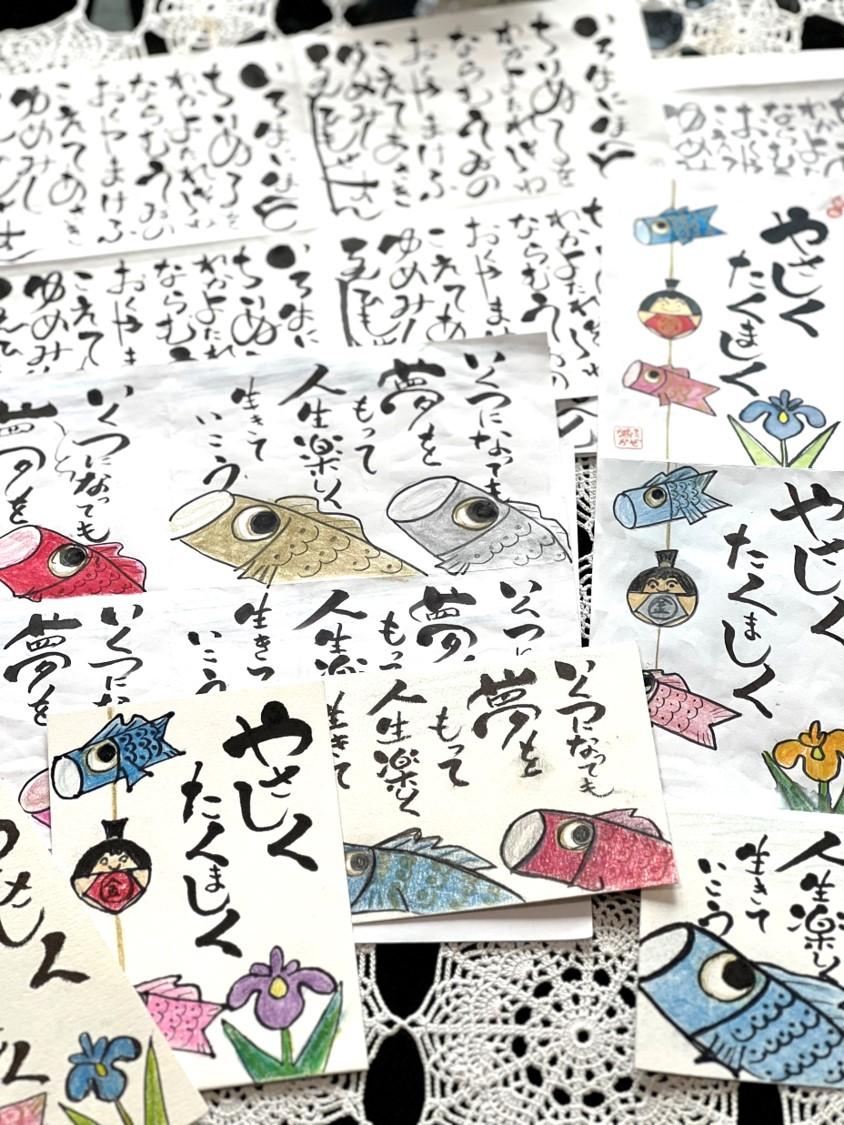 いろはにほへと
ちりぬるを
わかよたれそつね
ならむうゐの
おくやまけふ
こえてあさき
ゆめみし
ゑひもせすん
いろはにほへと
ちりぬるを
わかよたれそつね
ならむうゐの
おくやまけふ
こえてあさき
ゆめみし
わかよ
ならむ
おくや
こえて
ゆめ
わかよたれそつ
ならむう
おくやま
こえて
ゆめみし
ゑひもせ
いろはに
ちりぬ
わかよたれ
ならむ
おくやま
こえて
ゆめみ
やさしく
たくましく
いくつになっても
夢を
もって
人生楽しく
生きて
いこう
いくつになっても
夢を
やさしく
たくましく
いくつに
夢
もっ
人生
生きて
いこう
いくつにな
夢を
いくつになっても
夢を
もって
人生楽しく
生きて
やさしく
たくましく
金
金
人生楽し
生きて
いこう